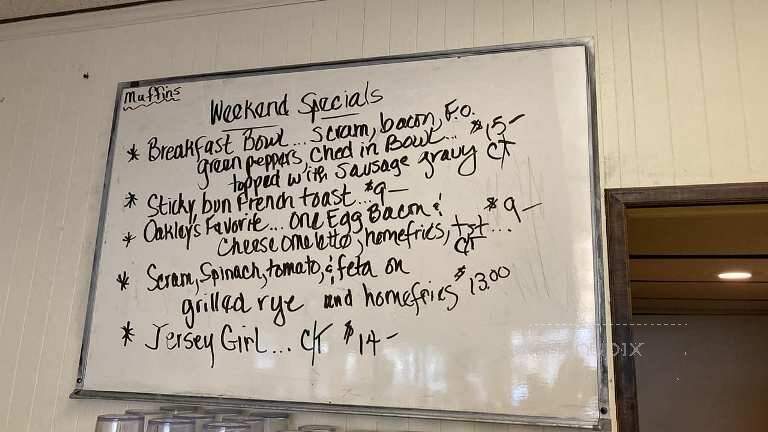 Muffins
Weekend Specials
* Breakfast Bowl... scram, bacon, F.O.
green peppers, Ched in Bowl... $15-
topped with sausage gravy CT
* Sticky bun French toast... $9-
* Oakley's Favorite... one Egg Bacon &
cheese omelette, homefries, tst... $9-
CT
* Scram, Spinach, tomato, & feta on
grilled rye and homefries $13.00
* Jersey Girl... CT $14-